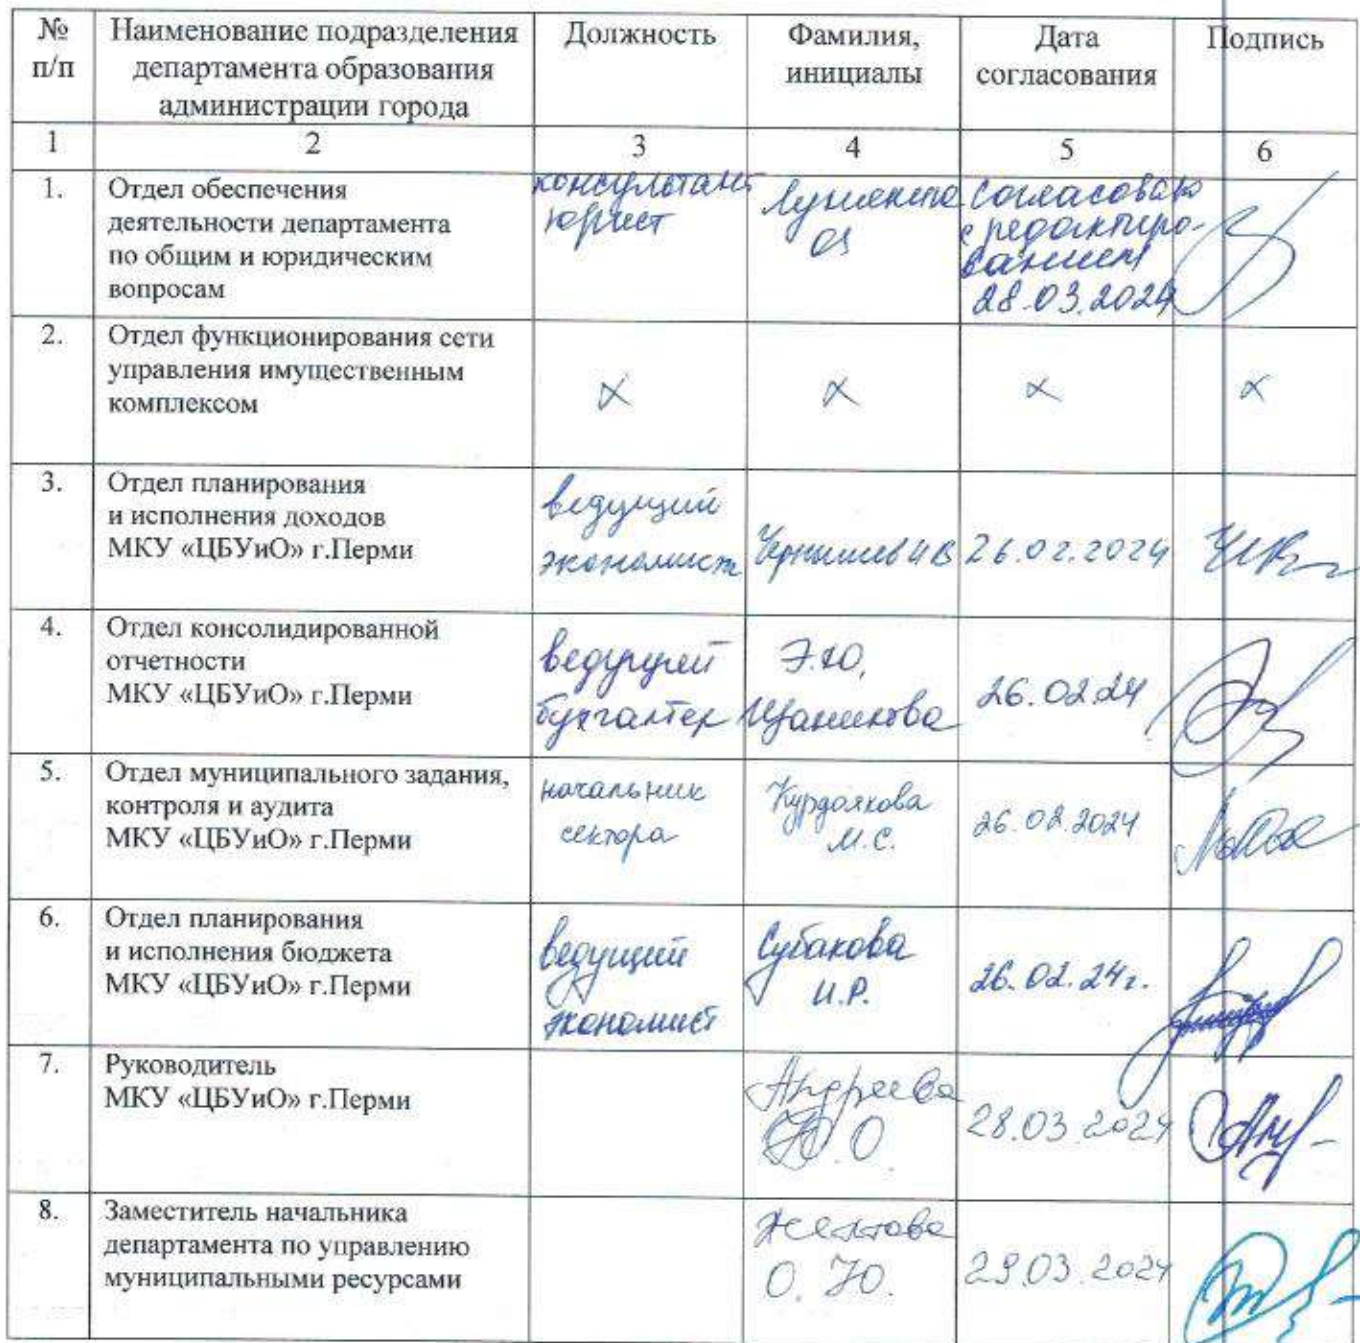 № п/п
Наименование подразделения департамента образования администрации города
Должность
Фамилия, инициалы
Дата согласования
Подпись
1 2 3 4 5 6
1.
Отдел обеспечения
деятельности департамента
по общим и юридическим
вопросам
консультант
юрист
согласовано
с редактиро-
ванием
28.03.2024
2.
Отдел функционирования сети
управления имущественным
комплексом
3.
Отдел планирования
и исполнения доходов
МКУ «ЦБУиО» г.Перми
ведущий
экономист
Чернышев ИВ
26.02.2024
4.
Отдел консолидированной
отчетности
МКУ «ЦБУиО» г.Перми
ведущий
бухгалтер
Э.Ю.
26.02.24
5.
Отдел муниципального задания,
контроля и аудита
МКУ «ЦБУиО» г.Перми
начальник
сектора
М.С.
26.02.2024
6.
Отдел планирования
и исполнения бюджета
МКУ «ЦБУиО» г.Перми
ведущий
экономист
Субакова
И.Р.
26.02.24г.
7.
Руководитель
МКУ «ЦБУиО» г.Перми
Андреева
Ю.О.
28.03.2024
8.
Заместитель начальника
департамента по управлению
муниципальными ресурсами
О.Ю.
29.03.2024